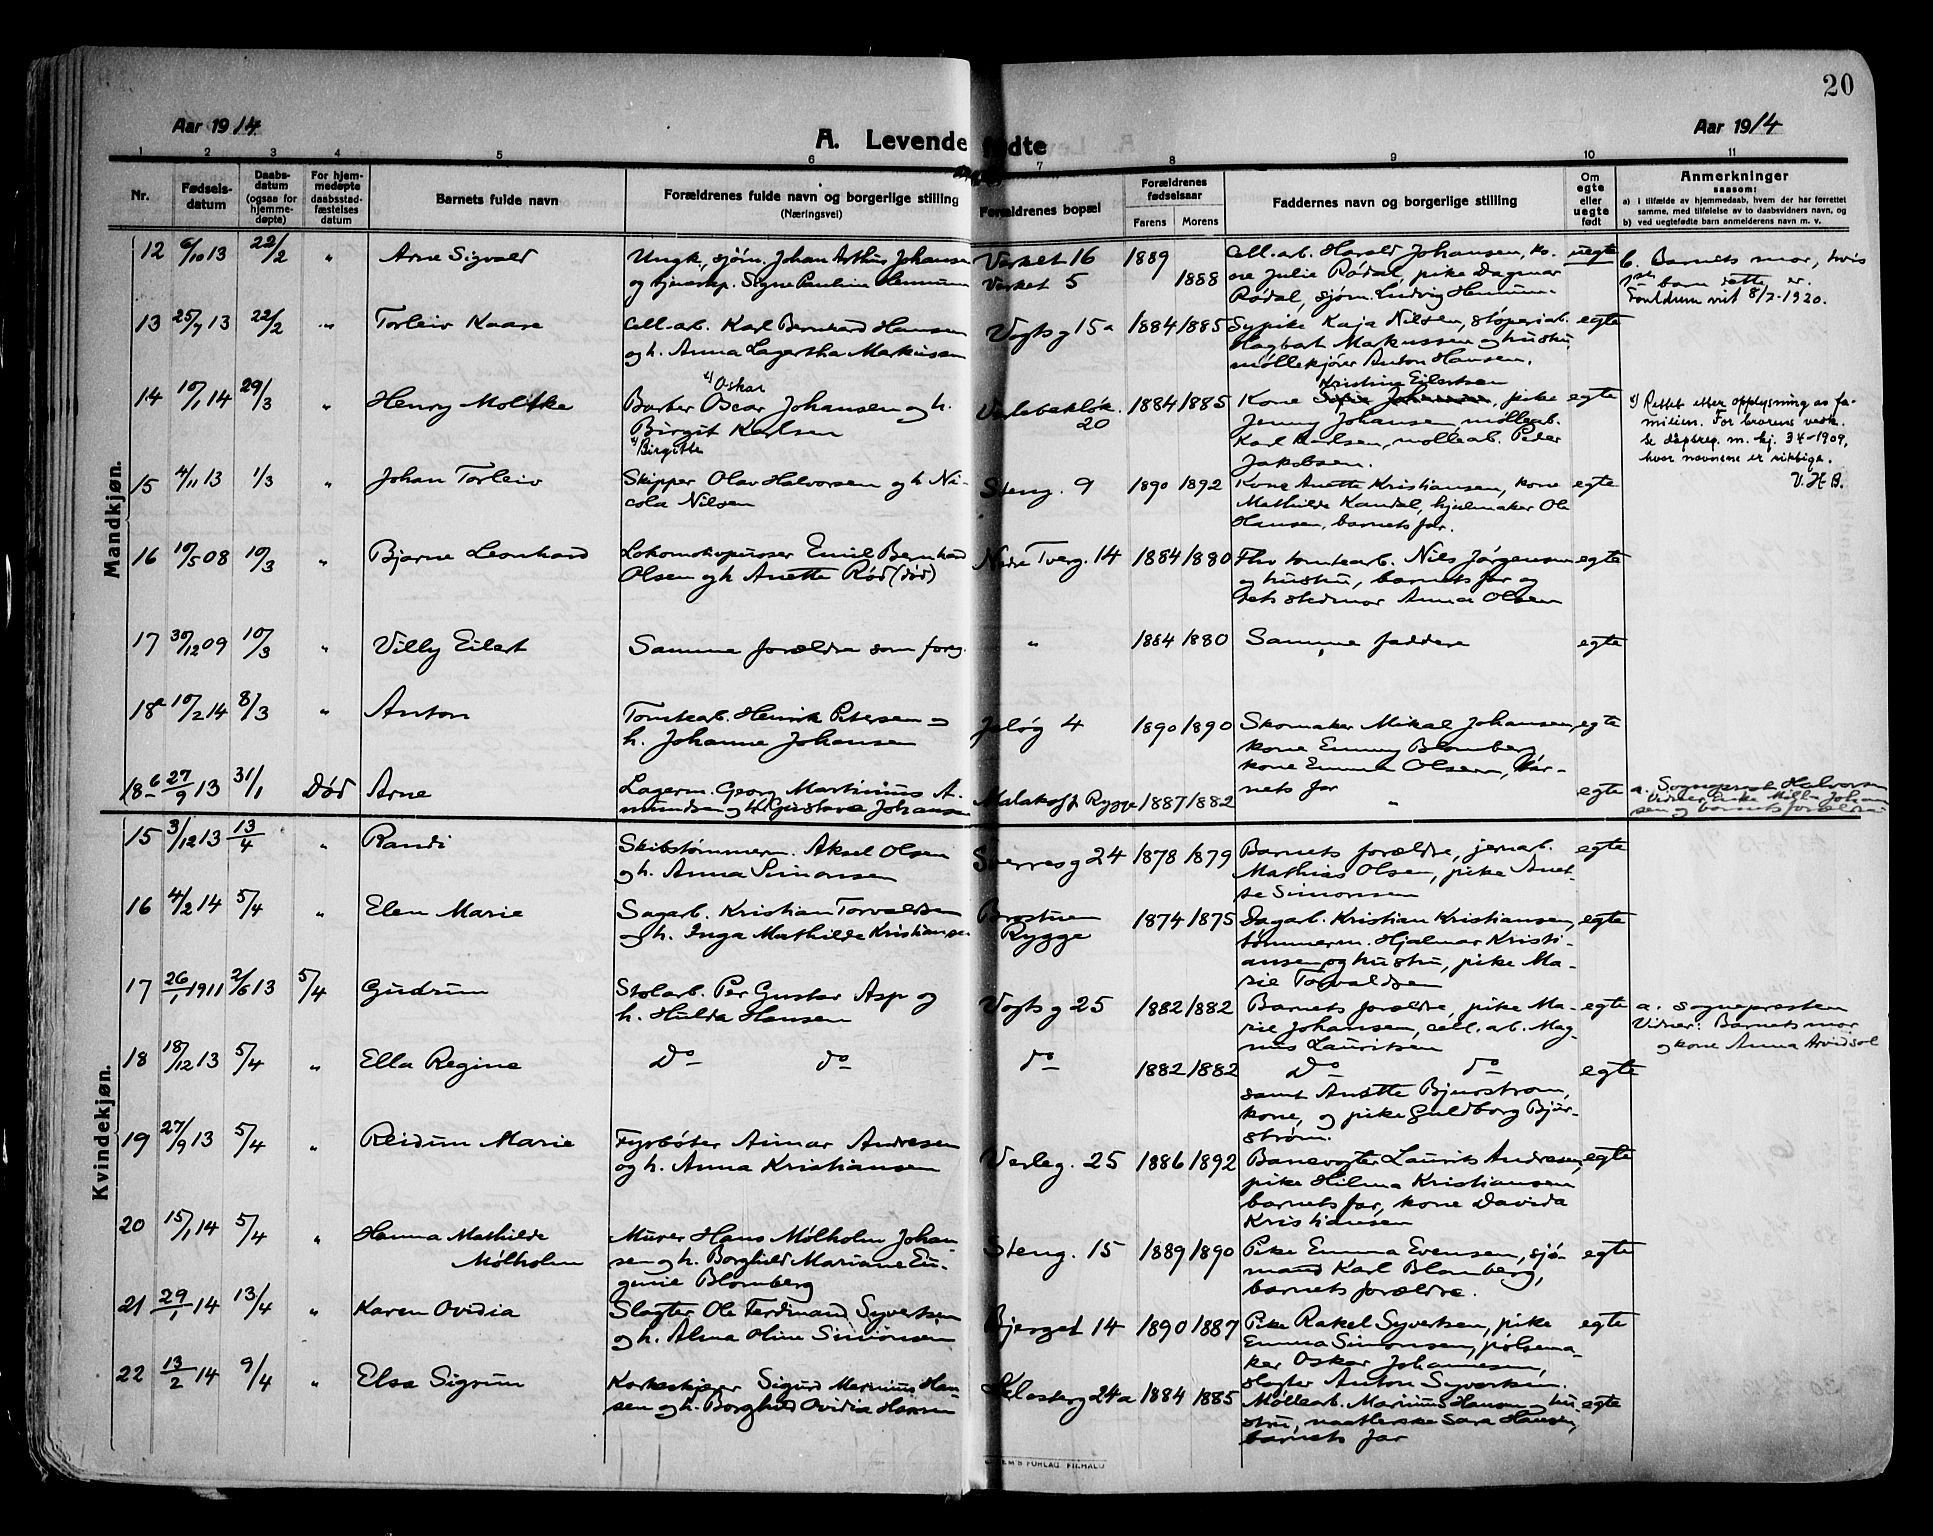 20
Aar 1914
A. Levende fødte
Aar 1914
1 2 3 4 5 6 7 8 9 10 11
Nr.
Fødsels-
datum
Daabs-
datum
(ogsaa for
hjemme-
døpte)
For hjem-
medøpte
daabsstad-
fæstelses
datum
Barnets fulde navn
Forældrenes fulde navn og borgerlige stilling
(Næringsvei)
Forældrenes bopæl
Forældrenes
fødselsaar
Farens Morens
Faddernes navn og borgerlige stilling
Om
egte
eller
uegte
født
Anmerkninger
saasom:
a) I tilfælde av hjemmedaab, hvem der har forrettet
samme, med tilføielse av to daabsvidners navn, og
b) ved uegtefødte barn anmelderens navn m. v.
Mandkjøn.
12 6/10 13 22/2 " Arne Sigvald
Ungk., sjøm. Johan Arthur Johansen
og tjenestep. Signe Pauline Hennum
Verket 16 1889
Verket 5 1888
Cell.arb. Harald Johansen, ko-
ne Julie Rødal, pike Dagmar
Rødal, sjøm. Ludvig Hennum
uegte
b. Barnets mor, hvis
1ste barn dette er.
8/7-1920.
13 25/7 13 22/2 " Torleiv Kaare
Cell.arb. Karl Bernhard Hansen
og h. Anna Lagertha Markussen
Vogtsg 15a 1884 1885
Sypike Kaja Nilsen, støperiarb.
Hagbart Markussen og hustru,
møllekjører Anton Hansen.
egte
14 10/1 14 29/3 " Henry Moltke
x) Oskar
Barber Oscar Johansen og h.
Birgit Karlsen
x) Birgitte
Varlebakløk. 1884 1885
20
Kristine Eilertsen
Kone Johansen, pike
Jenny Johansen, møllearb.
Karl Karlsen, møllearb. Peder
Jakobsen.
egte
x) Rettet etter opplysning av fa-
milien. For brorens vedk.
se dåpsreg. m. kj. 34-1909,
hvor navnene er riktige.
V. H. B.
15 4/11 13 1/3 " Johan Torleiv
Skipper Olav Halvorsen og h. Ni-
cola Nilsen
Steng. 9 1890 1892
Kone Anette Kristiansen, kone
Mathilde Kandal, hjulmaker Ole
Hansen, barnets far.
egte
16 10/5 08 10/3 " Bjarne Leonhard
Lokomotivpusser Emil Bernhard
Olsen og h. Anette Rød (død)
Nedre Tverg. 14 1884 1880
Fhv tomtearb. Nils Jørgensen
og hustru, barnets far og
dets stedmor Anna Olsen
egte
17 30/12 09 10/3 " Villy Eilert
Samme forældre som foreg.
" 1884 1880
Samme faddere
egte
18a 10/2 14 8/3 " Anton
Tomtearb. Henrik Petersen og
h. Johanne Johansen
Jeløg 4 1890 1890
Skomaker Mikal Johansen,
kone Emmy Blomberg,
kone Emma Olsen, bar-
nets far
egte
18b 27/9 13 31/1 Død Arne
Lagerm. Georg Martinius A-
mundsen og h. Gustava Johansen
Malakoff Rygge 1887 1882
"
egte
a. Sogneprest Halvorsen
Vidner: Enke Johan-
sen og barnets forældre
Kvindekjøn.
15 3/12 13 13/4 " Randi
Skibstømmerm. Aksel Olsen
og h. Anna Simonsen
Sverresg 24 1878 1879
Barnets forældre, jernarb.
Mathias Olsen, pike Anet-
te Simonsen
egte
16 4/2 14 5/4 " Elen Marie
Sagarb. Kristian Torvaldsen
og h. Inga Mathilde Kristiansen
Brostuen
Rygge
1874 1875
Sagarb. Kristian Kristiansen,
tømmerm. Hjalmar Kristi-
ansen og hustru, pike Ma-
rie Torvaldsen
egte
17 26/1 1911 2/6 13 5/4 Gudrun
Stolarb. Per Gustav Asp og
h. Hulda Hansen
Vogtsg 25 1882 1882
Barnets forældre, pike Ma-
rie Johansen, cell.arb. Mag-
nus Lauritsen
egte
a. Sognepresten
Vidner: Barnets mor
og kone Anna Arvidsol
18 18/12 13 5/4 " Ella Regine
Do do
do 1882 1882
Do do
samt Anette Bjurstrøm,
kone, og pike Guldborg Bjur-
strøm.
egte
19 27/9 13 5/4 " Reidun Marie
Fyrbøter Aimar Andresen
og h. Anna Kristiansen
Verleg. 25 1886 1892
Banevogter Laurits Andresen,
pike Hilma Kristiansen
barnets far, kone Davida
Kristiansen
egte
20 15/1 14 5/4 " Hanna Mathilde
Mølholm
Murer Hans Mølholm Johan-
sen og h. Borghild Mariane Eu-
genie Blomberg
Steng. 15 1889 1890
Pike Emma Evensen, sjø-
mand Karl Blomberg,
barnets forældre.
egte
21 29/1 14 13/4 " Karen Ovidia
Slagter Ole Ferdinand Syvertsen
og h. Alma Oline Simonsen
Bjerget 14 1890 1887
Pike Rakel Syvertsen, pike
Emma Simonsen, pølsema-
ker Oskar Johannesen,
slagter Anton Syvertsen.
egte
22 13/2 14 9/4 " Elsa Sigrun
Korkeskjærer Sigurd Marinius Han-
sen og h. Borghild Ovidia Hansen
Klosterg 24a 1884 1885
Møllearb. Marinius Hansen og hu-
stru, Sara Hansen,
barnets far
egte
FORLAG, FR.HALD